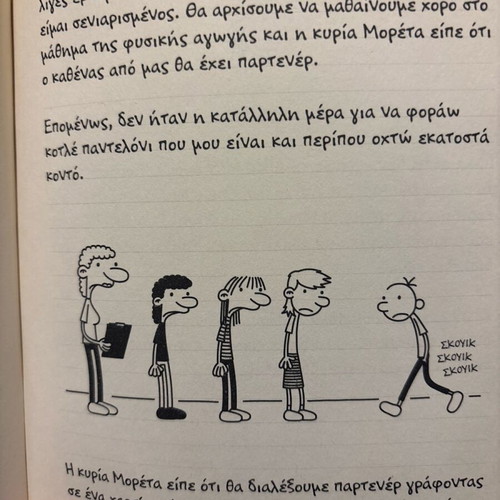 είμαι σενιαρισμένος. Θα αρχίσουμε να μαθαίνουμε χορό στο
μάθημα της φυσικής αγωγής και η κυρία Μορέτα είπε ότι
ο καθένας από μας θα έχει παρτενέρ.
Επομένως, δεν ήταν η κατάλληλη μέρα για να φοράω
κοτλέ παντελόνι που μου είναι και περίπου οχτώ εκατοστά
κοντό.
ΣΚΟΥΙΚ
ΣΚΟΥΙΚ
ΣΚΟΥΙΚ
Η κυρία Μορέτα είπε ότι θα διαλέξουμε παρτενέρ γράφοντας
σε ένα